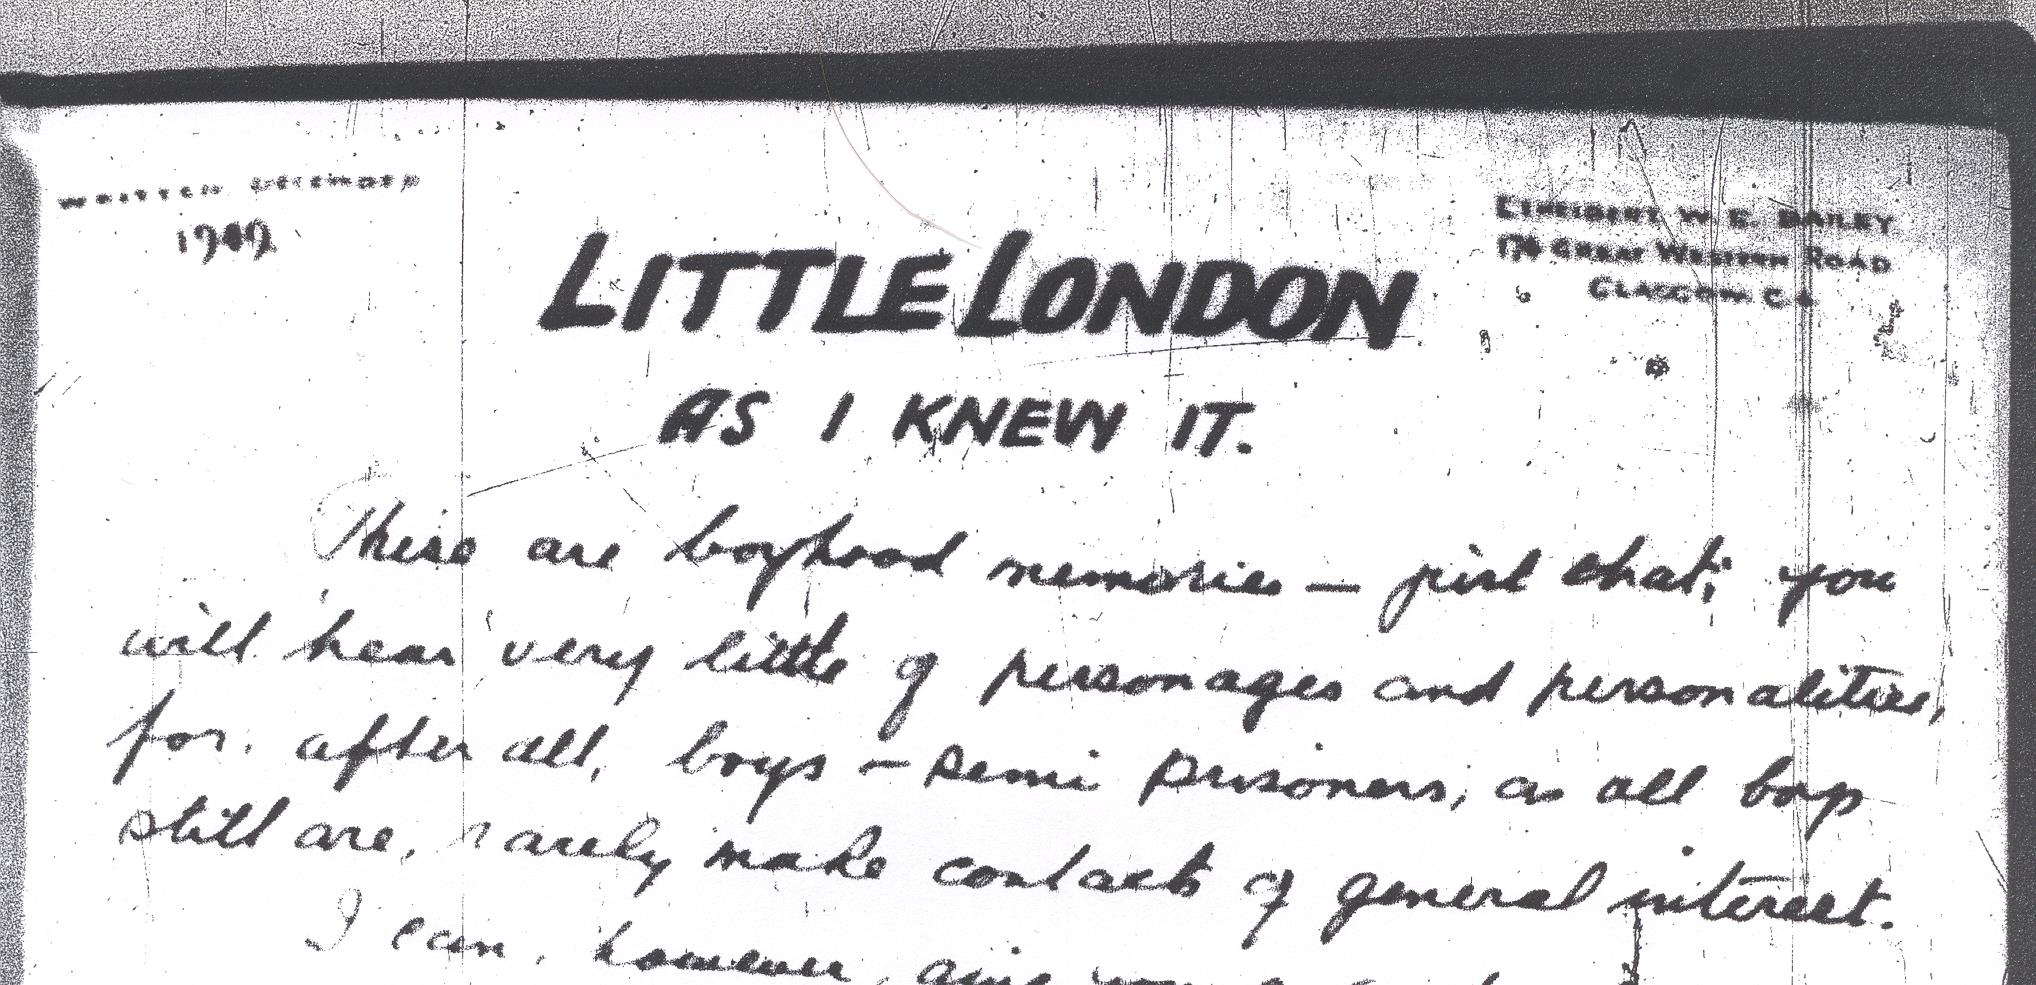 WRITTEN DECEMBER
19
W. E. BAILEY
GREAT WESTERN ROAD
GLASGOW C.4
LITTLE LONDON
AS I KNEW IT.
These are boyhood memories — just chat; you
will hear very little of personages and personalities,
for, after all, boys – semi prisoners, as all boys
still are, rarely make contacts of general interest.
I can, however, give you